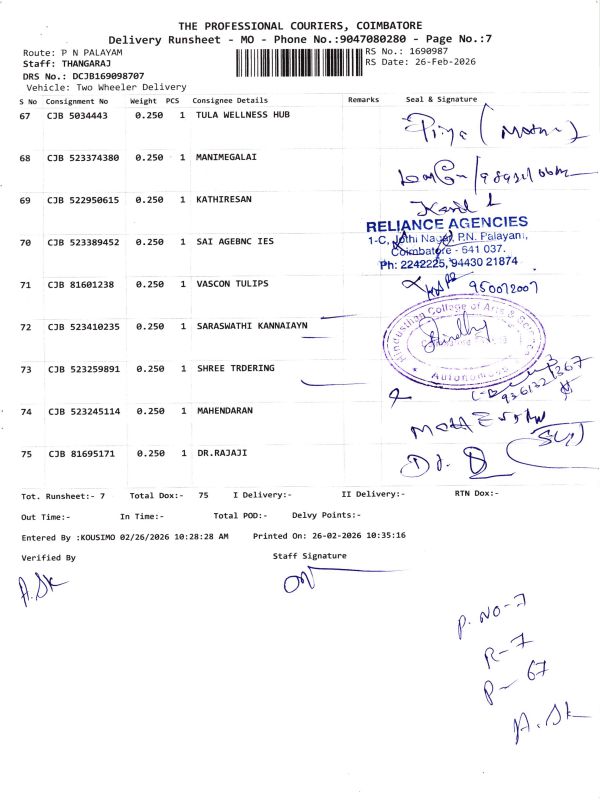 THE PROFESSIONAL COURIERS, COIMBATORE
Delivery Runsheet - MO - Phone No.:9047080280 - Page No.:7
Route: P N PALAYAM
RS No.: 1690987
Staff: THANGARAJ
RS Date: 26-Feb-2026
DRS No.: DCJB169098707
Vehicle: Two Wheeler Delivery
S No Consignment No Weight PCS Consignee Details Remarks Seal & Signature
67 CJB 5034443 0.250 1 TULA WELLNESS HUB
Priya (Mother)
68 CJB 523374380 0.250 1 MANIMEGALAI
69 CJB 522950615 0.250 1 KATHIRESAN
RELIANCE AGENCIES
1-C, Jothi Nagar, P.N. Palayam,
70 CJB 523389452 0.250 1 SAI AGEBNC IES
Coimbatore - 641 037.
Ph: 2242225, 94430 21874
71 CJB 81601238 0.250 1 VASCON TULIPS
72 CJB 523410235 0.250 1 SARASWATHI KANNAIAYN
Hindusthan College of Arts & Science
Autonomous
73 CJB 523259891 0.250 1 SHREE TRDERING
74 CJB 523245114 0.250 1 MAHENDARAN
75 CJB 81695171 0.250 1 DR.RAJAJI
Tot. Runsheet:- 7 Total Dox:- 75 I Delivery:- II Delivery:- RTN Dox:-
Out Time:- In Time:- Total POD:- Delvy Points:-
Entered By :KOUSIMO 02/26/2026 10:28:28 AM Printed On: 26-02-2026 10:35:16
Verified By Staff Signature
A.Sk
P. NO-7
R-7
P- 67
A.Sk